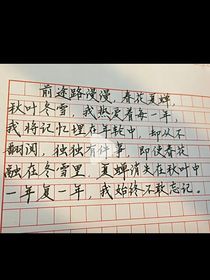 前途路漫漫，春花夏蝉，
秋叶冬雪，我热爱着每一年，
我将记忆埋在年轮中，却从不
翻阅，独独有件事，即使春花
融在冬雪里，夏蝉消失在秋叶中
一年复一年，我始终不敢忘记。